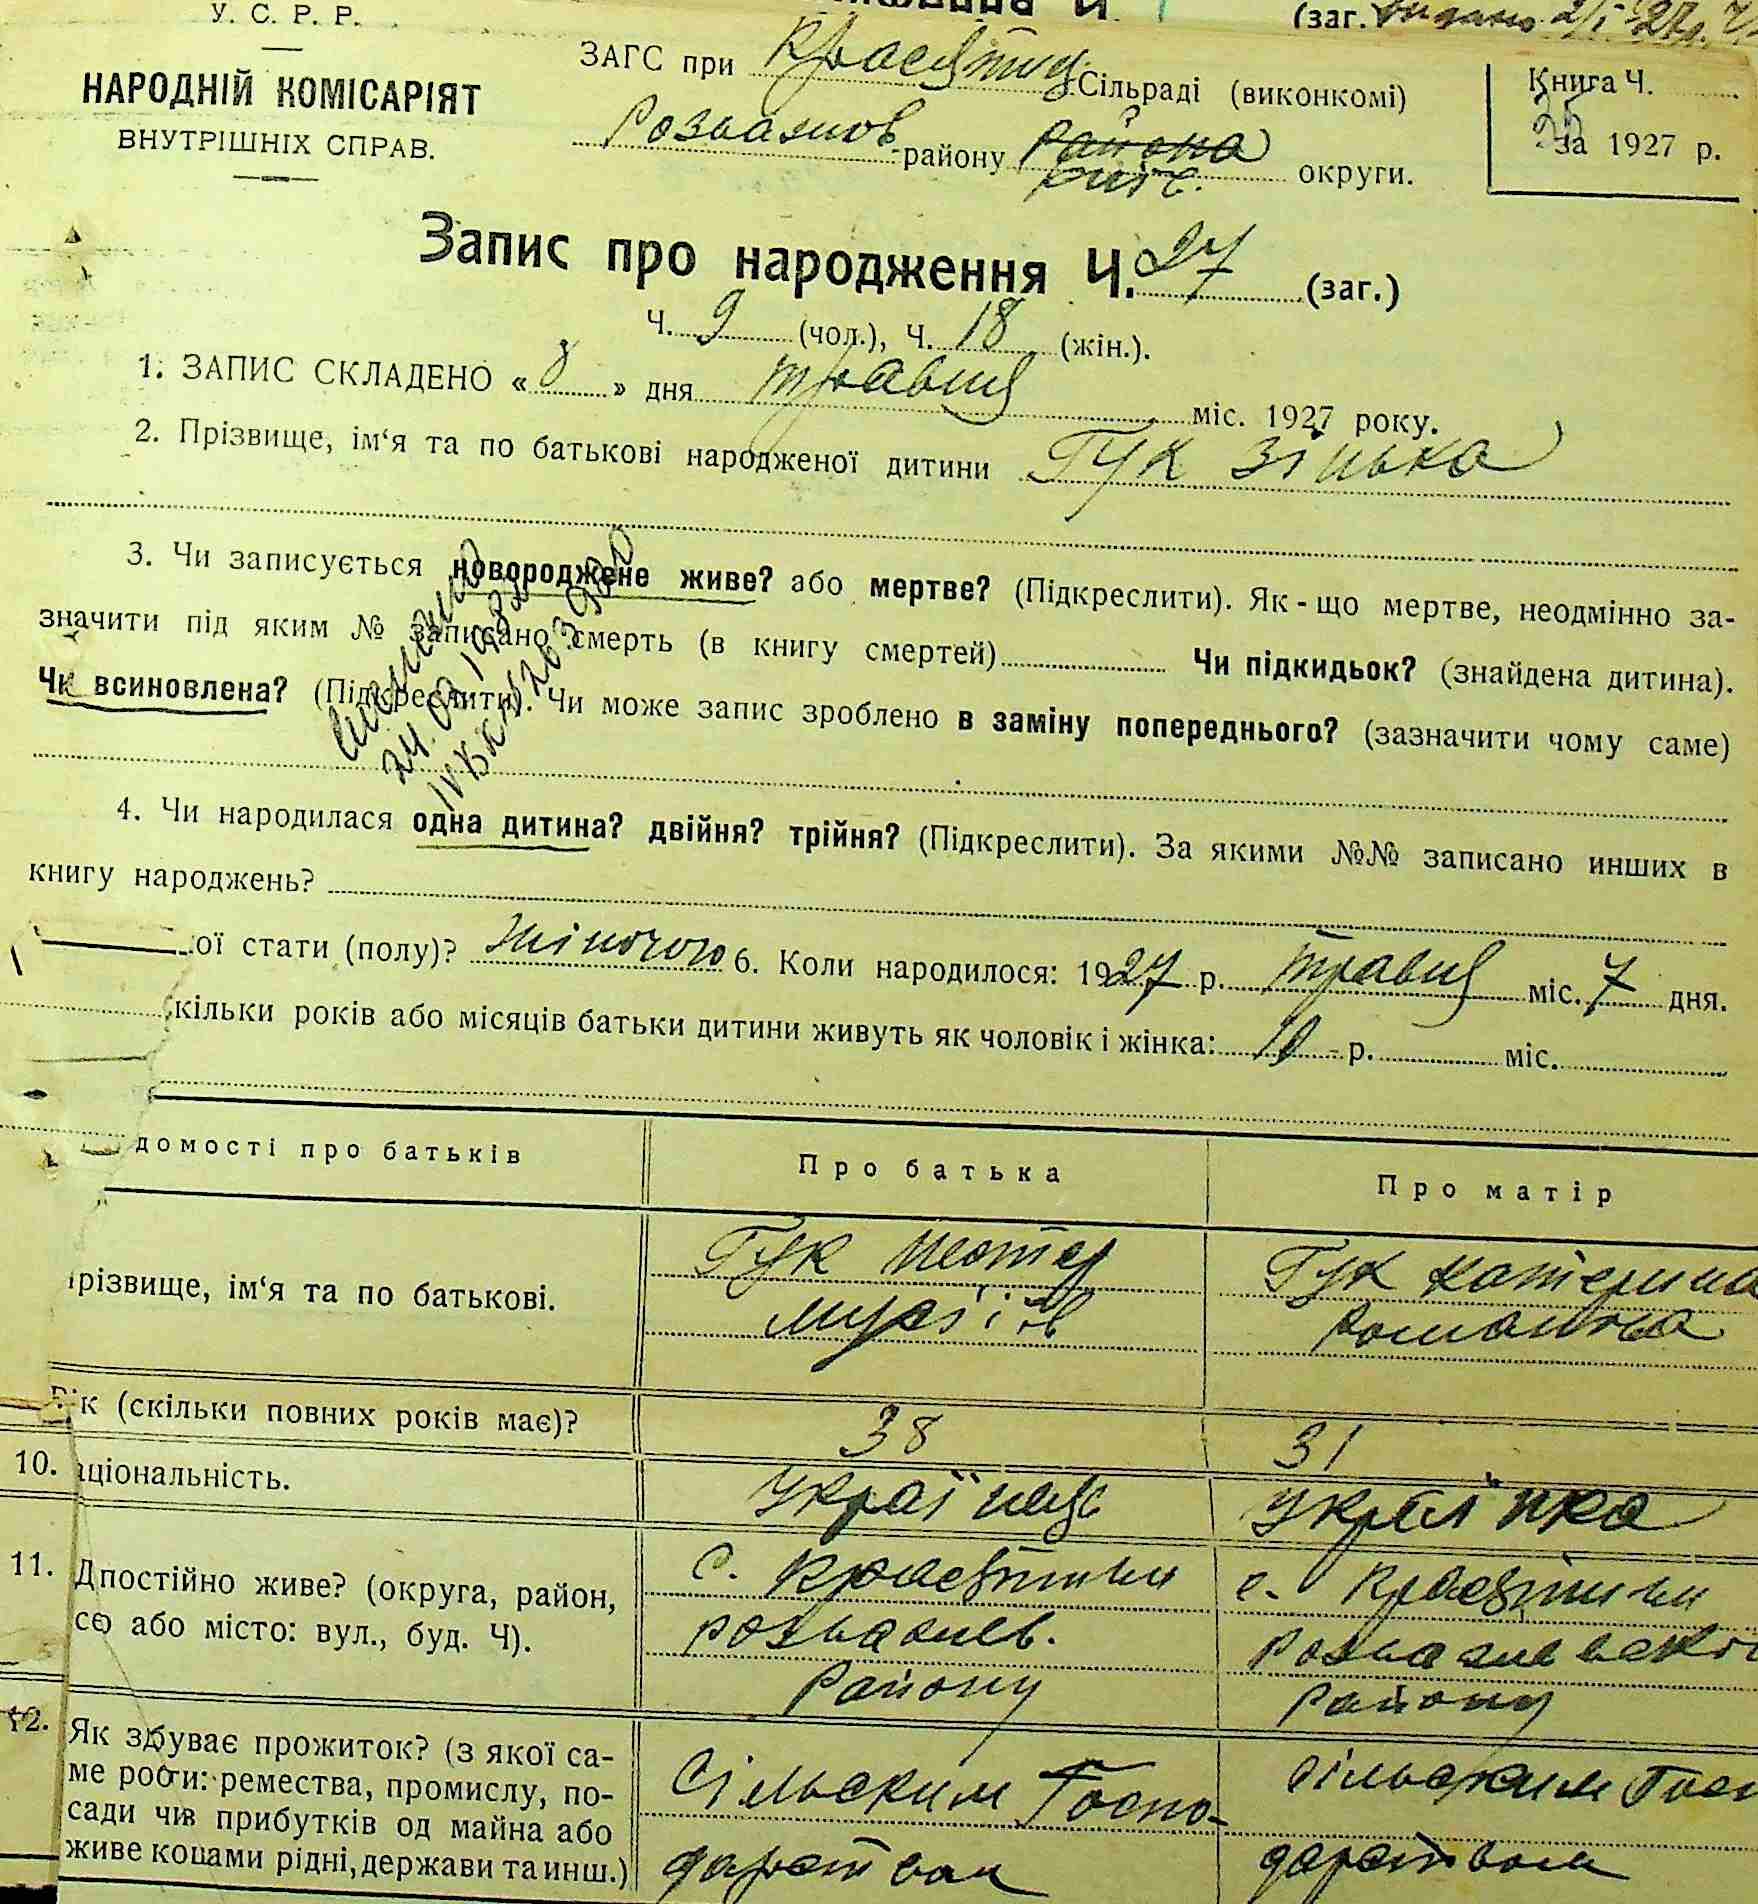 У. С. Р. Р.
НАРОДНІЙ КОМІСАРІЯТ
ВНУТРІШНІХ СПРАВ.
(заг.
ЗАГС при Красятиц. Сільраді (виконкомі)
Розважов. району района округи.
Книга Ч.
за 1927 р.
Запис про народження Ч. 27 (заг.)
Ч. 9 (чол.), Ч. 18 (жін.).
1. ЗАПИС СКЛАДЕНО « 8 » дня травня міс. 1927 року.
2. Прізвище, ім‘я та по батькові народженої дитини Гук Зінька
3. Чи записується новороджене живе? або мертве? (Підкреслити). Як-що мертве, неодмінно за-
значити під яким № записано смерть (в книгу смертей) Чи підкидьок? (знайдена дитина).
Чи всиновлена? (Підкреслити). Чи може запис зроблено в заміну попереднього? (зазначити чому саме)
4. Чи народилася одна дитина? двійня? трійня? (Підкреслити). За якими №№ записано инших в
книгу народжень?
ої стати (полу)? жіночого 6. Коли народилося: 1927 р. травня міс. 7 дня.
кільки років або місяців батьки дитини живуть як чоловік і жінка: 10 р. міс.
домості про батьків Про батька Про матір
різвище, ім‘я та по батькові. Гук Нестер Гук Катерина
Романова
Вік (скільки повних років має)? 38 31
10. аціональність. Українець Українка
11. Д постійно живе? (округа, район,
се або місто: вул., буд. Ч).
с. Красятичи с. Красятичи
Розважев. Розважевсько
Району Району
12. Як здбуває прожиток? (з якої са-
ме роботи: ремества, промислу, по-
сади чи з прибутків од майна або
живе коцами рідні, держави та инш.)
Сільским Госпо- сільским Госп
дарством дарством